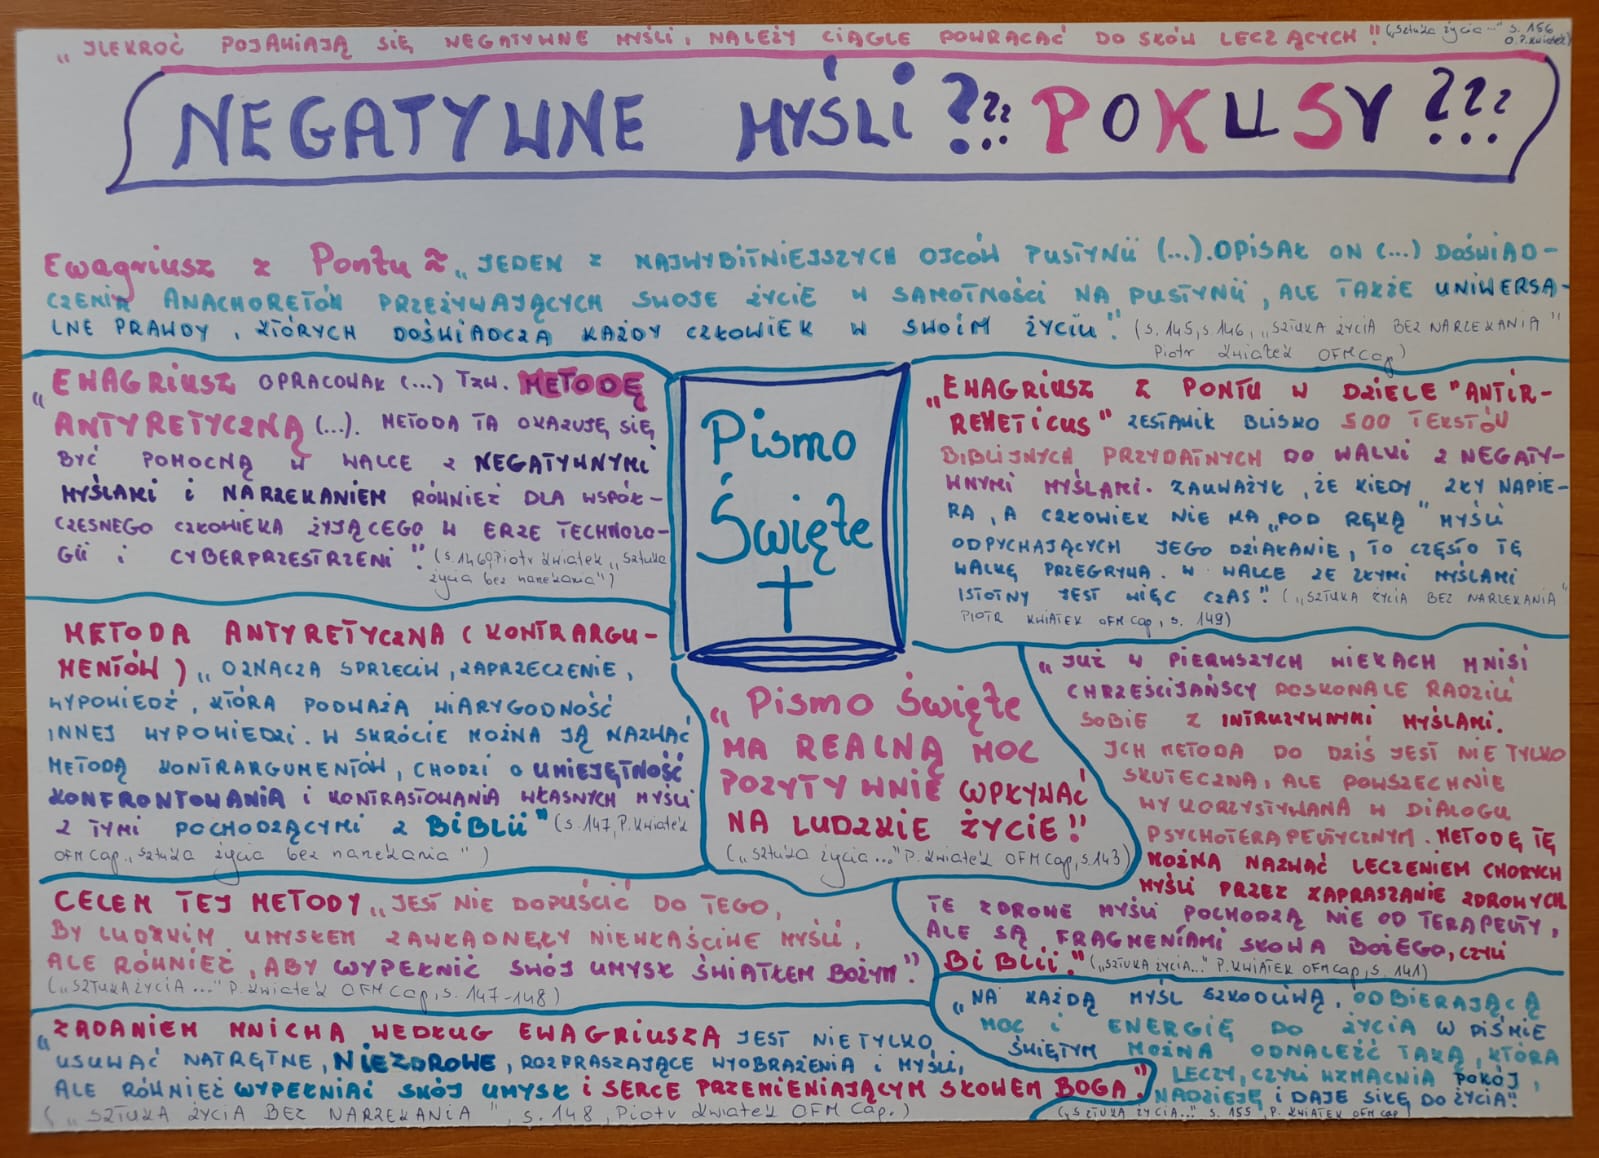 „ILEKROĆ POJAWIAJĄ SIĘ NEGATYWNE MYŚLI, NALEŻY CIĄGLE POWRACAĆ DO SŁÓW LECZĄCYCH!" („Sztuka życia..." s. 156
O.P.Kwiatek)
NEGATYWNE MYŚLI ??? POKUSY ???
Ewagriusz z Pontu ~ „JEDEN Z NAJWYBITNIEJSZYCH OJCÓW PUSTYNII (...). OPISAŁ ON (...) DOŚWIAD-
CZENIA ANACHORETÓW PRZEŻYWAJĄCYCH SWOJE ŻYCIE W SAMOTNOŚCI NA PUSTYNII, ALE TAKŻE UNIWERSA-
LNE PRAWDY, KTÓRYCH DOŚWIADCZA KAŻDY CZŁOWIEK W SWOIM ŻYCIU." (s. 145, s. 146, „SZTUKA ŻYCIA BEZ NARZEKANIA"
Piotr Kwiatek OFMCap)
„EWAGRIUSZ OPRACOWAŁ (...) TZW. METODĘ
ANTYRETYCZNĄ (...). METODA TA OKAZUJĘ SIĘ
BYĆ POMOCNĄ W WALCE Z NEGATYWNYMI
MYŚLAMI i NARZEKANIEM RÓWNIEŻ DLA WSPÓŁ-
CZESNEGO CZŁOWIEKA ŻYJĄCEGO W ERZE TECHNOLO-
GII i CYBERPRZESTRZENI". (s. 146, Piotr Kwiatek „Sztuka
życia bez narzekania")
Pismo
Święte
„EWAGRIUSZ Z PONTU W DZIELE "ANTIR-
RHETICUS" ZESTAWIŁ BLISKO 500 TEKSTÓW
BIBLIJNYCH PRZYDATNYCH DO WALKI Z NEGATY-
WNYMI MYŚLAMI. ZAUWAŻYŁ, ŻE KIEDY ZŁY NAPIE-
RA, A CZŁOWIEK NIE MA „POD RĘKĄ" MYŚLI
ODPYCHAJĄCYCH JEGO DZIAŁANIE, TO CZĘSTO TĘ
WALKĘ PRZEGRYWA. W WALCE ZE ZŁYMI MYŚLAMI
ISTOTNY JEST WIĘC CZAS". („SZTUKA ŻYCIA BEZ NARZEKANIA"
PIOTR KWIATEK OFMCap, s. 149)
METODA ANTYRETYCZNA (KONTRARGU-
MENTÓW) „OZNACZA SPRZECIW, ZAPRZECZENIE,
WYPOWIEDŹ, KTÓRA PODWAŻA WIARYGODNOŚĆ
INNEJ WYPOWIEDZI. W SKRÓCIE MOŻNA JĄ NAZWAĆ
METODĄ KONTRARGUMENTÓW, CHODZI O UMIEJĘTNOŚĆ
KONFRONTOWANIA i KONTRASTOWANIA WŁASNYCH MYŚLI
Z TYMI POCHODZĄCYMI Z BIBLII" (s. 147, P. Kwiatek
OFMCap „Sztuka życia bez narzekania")
„Pismo Święte
MA REALNĄ MOC
POZYTYWNIE WPŁYWAĆ
NA LUDZKIE ŻYCIE!"
(„Sztuka życia..." P. Kwiatek OFMCap, s. 143)
„JUŻ W PIERWSZYCH WIEKACH MNISI
CHRZEŚCIJAŃSCY DOSKONALE RADZILI
SOBIE Z INTRUZYWNYMI MYŚLAMI.
ICH METODA DO DZIŚ JEST NIE TYLKO
SKUTECZNA, ALE POWSZECHNIE
WYKORZYSTYWANA W DIALOGU
PSYCHOTERAPEUTYCZNYM. METODĘ TĘ
MOŻNA NAZWAĆ LECZENIEM CHORYCH
MYŚLI PRZEZ ZAPRASZANIE ZDROWYCH.
TE ZDROWE MYŚLI POCHODZĄ NIE OD TERAPEUTY,
ALE SĄ FRAGMENTAMI SŁOWA BOŻEGO, CZYLI
BIBLII." („SZTUKA ŻYCIA..." P. KWIATEK OFMCap, s. 141)
CELEM TEJ METODY „JEST NIE DOPUŚCIĆ DO TEGO,
BY LUDZKIM UMYSŁEM ZAWŁADNĘŁY NIEWŁAŚCIWE MYŚLI,
ALE RÓWNIEŻ, ABY WYPEŁNIĆ SWÓJ UMYSŁ ŚWIATŁEM BOŻYM".
(„SZTUKA ŻYCIA..." P. Kwiatek OFMCap, s. 147-148)
„ZADANIEM MNICHA WEDŁUG EWAGRIUSZA JEST NIE TYLKO
USUWAĆ NATRĘTNE, NIEZDROWE, ROZPRASZAJĄCE WYOBRAŻENIA i MYŚLI,
ALE RÓWNIEŻ WYPEŁNIAĆ SWÓJ UMYSŁ i SERCE PRZEMIENIAJĄCYM SŁOWEM BOGA".
(„SZTUKA ŻYCIA BEZ NARZEKANIA", s. 148, Piotr Kwiatek OFM Cap.)
„NA KAŻDĄ MYŚL SZKODLIWĄ, ODBIERAJĄCĄ
MOC i ENERGIĘ DO ŻYCIA W PIŚMIE
ŚWIĘTYM MOŻNA ODNALEŹĆ TAKĄ, KTÓRA
LECZY, CZYLI WZMACNIA POKÓJ,
NADZIEJĘ i DAJE SIŁĘ DO ŻYCIA".
(„SZTUKA ŻYCIA..." s. 155, P. KWIATEK OFMCap)